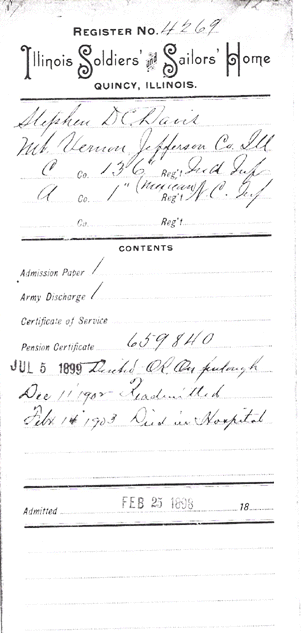 REGISTER No. 4269
Illinois Soldiers' and Sailors' Home
QUINCY, ILLINOIS.
Stephen D C Davis
Mt. Vernon Jefferson Co. Ill
C Co. 136" Reg't Ind Inf
A Co. 1" (Mexican) Reg't N.C. Inf
Co. Reg't
CONTENTS
Admission Paper 1
Army Discharge 1
Certificate of Service
Pension Certificate 659840
JUL 5 1899 OR On furlough
Dec 11" 1902 Readmitted
Feby. 14" 1903 Died in Hospital
Admitted FEB 25 1898 18